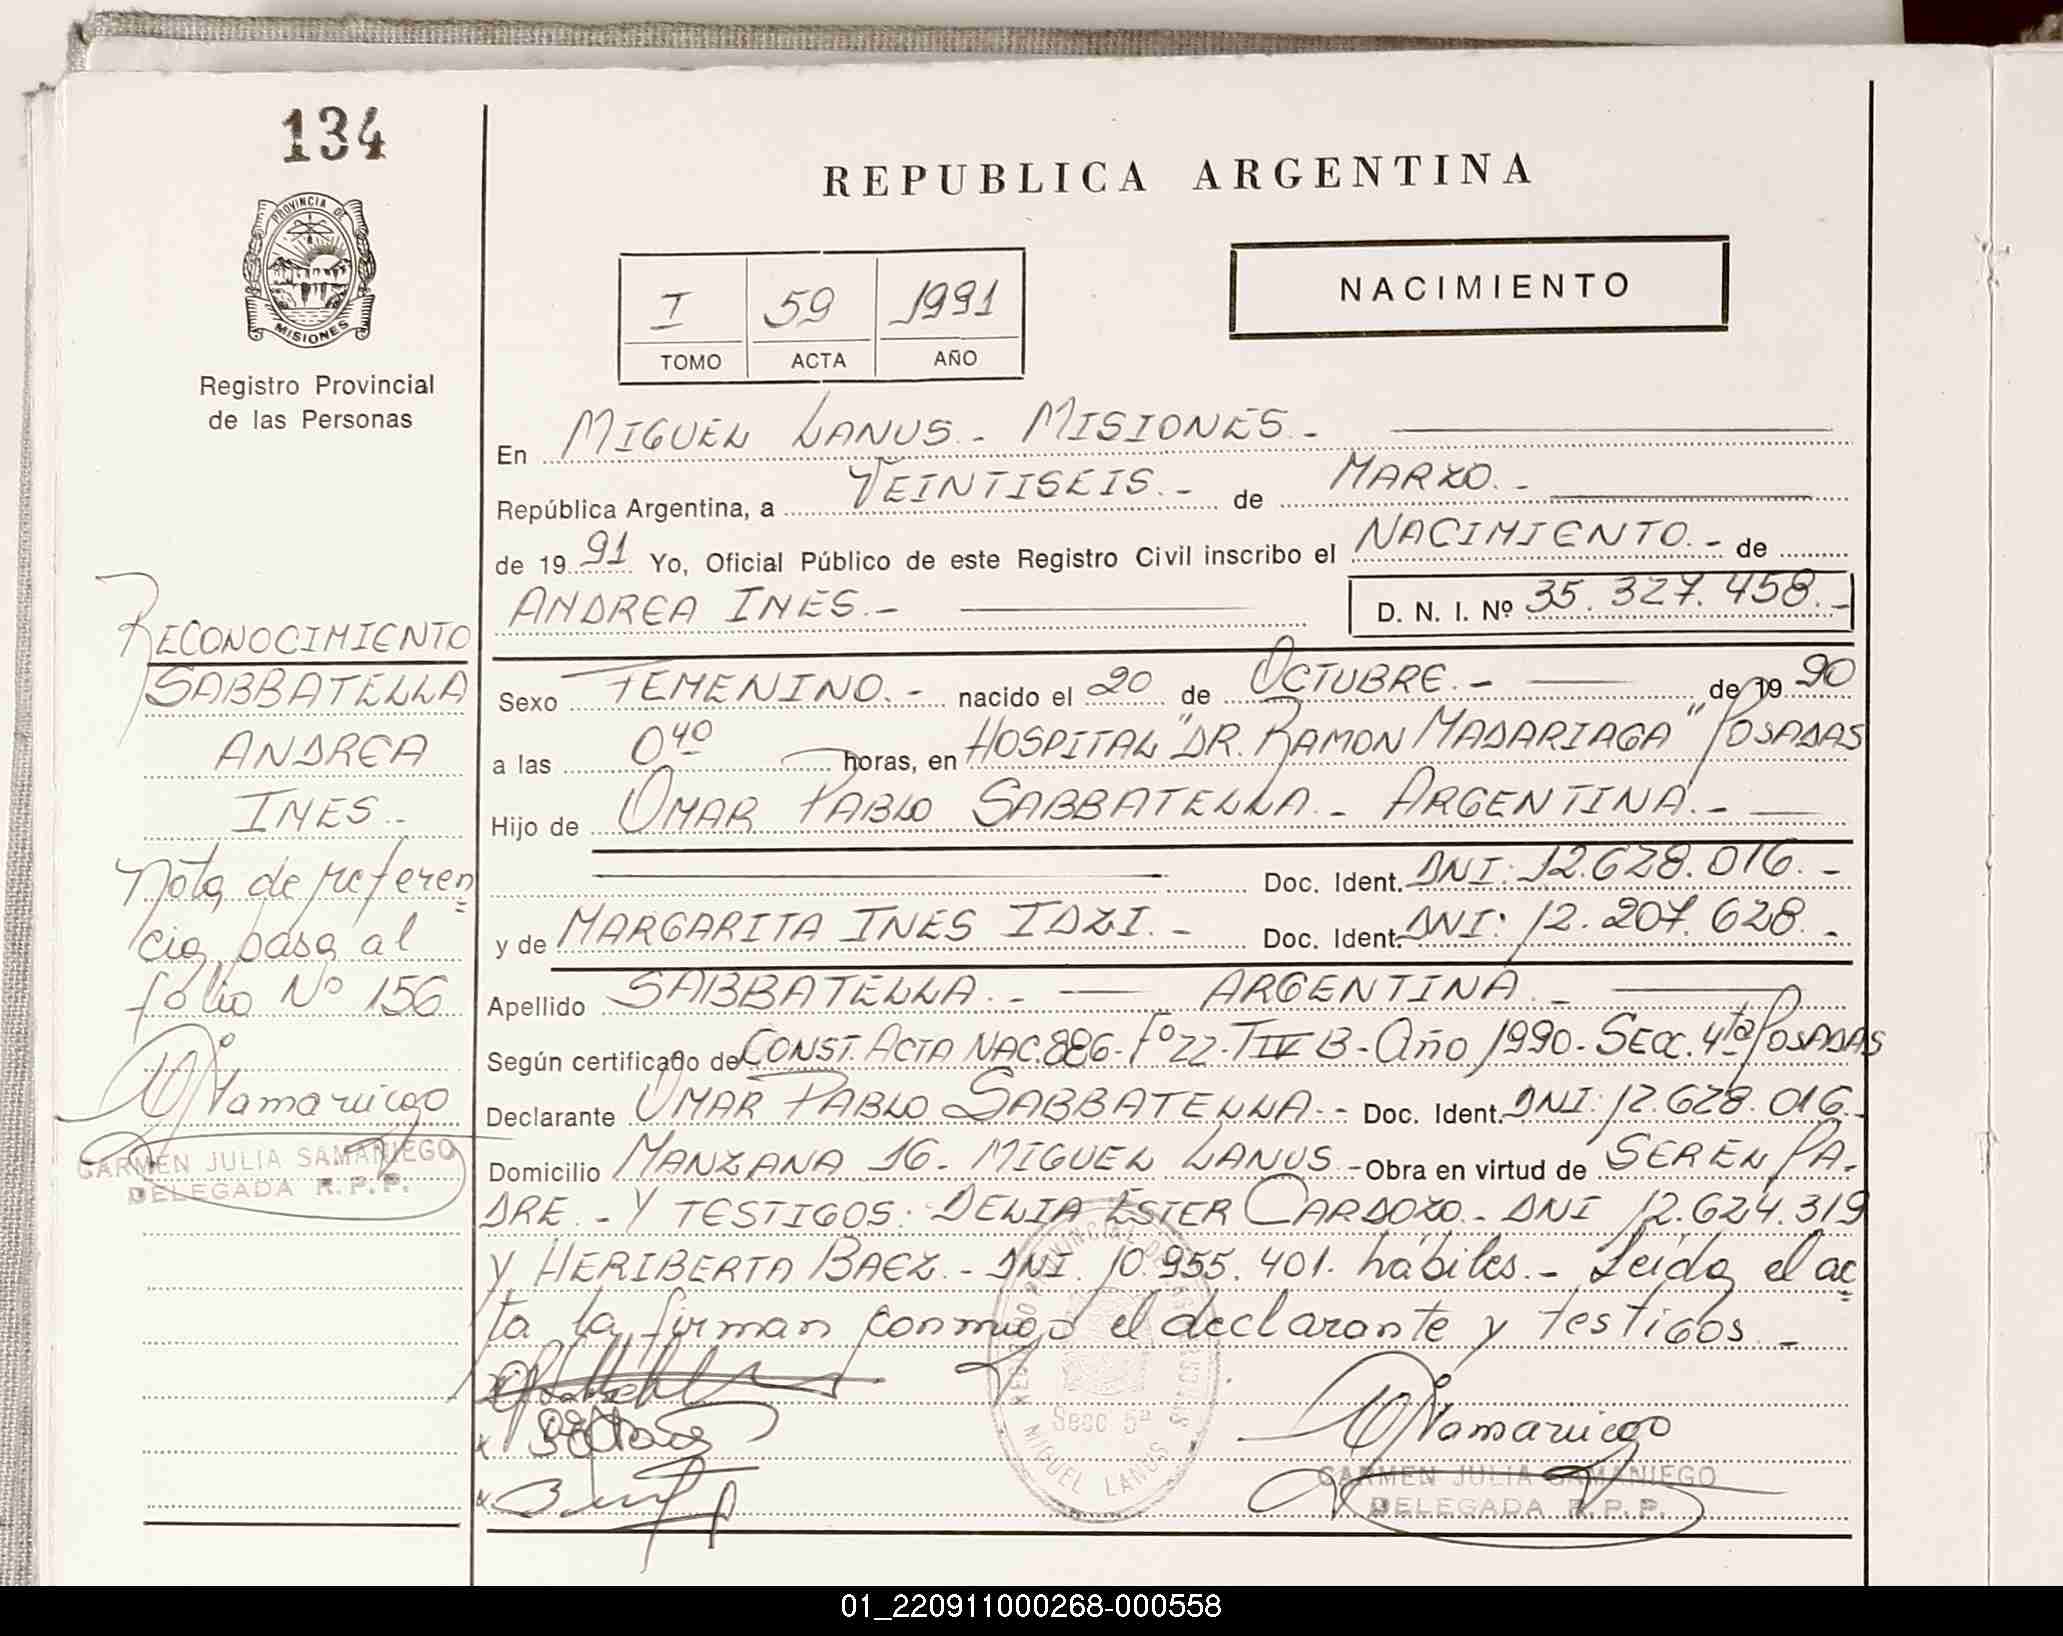 134
PROVINCIA DE
MISIONES
Registro Provincial
de las Personas
RECONOCIMIENTO
SABBATELLA
ANDREA
INES.-
Nota de referen
cia pasa al
folio Nº 156
CARMEN JULIA SAMANIEGO
DELEGADA R.P.P.
REPUBLICA ARGENTINA
I 59 1991
TOMO ACTA AÑO
NACIMIENTO
En MIGUEL LANUS.- MISIONES.-
República Argentina, a VEINTISEIS.- de MARZO.-
de 19 91 Yo, Oficial Público de este Registro Civil inscribo el NACIMIENTO.- de
ANDREA INES.- D. N. I. Nº 35.327.458.-
Sexo FEMENINO.- nacido el 20 de OCTUBRE.- de 19 90
a las 0 40 horas, en HOSPITAL "DR. RAMON MADARIAGA" POSADAS
Hijo de OMAR PABLO SABBATELLA.- ARGENTINA.-
Doc. Ident. DNI: 12.628.016.-
y de MARGARITA INES IDZI.- Doc. Ident. DNI: 12.207.628.-
Apellido SABBATELLA.- ARGENTINA.-
Según certificado de CONST. ACTA NAC. 886- Fº 22- T IV B- Año 1990- SECC. 4ta POSADAS
Declarante OMAR PABLO SABBATELLA.- Doc. Ident. DNI: 12.628.016.-
Domicilio MANZANA 16- MIGUEL LANUS.- Obra en virtud de SER EL PA-
DRE.- Y TESTIGOS: DELIA ESTER CARDOZO.- DNI 12.624.319
Y HERIBERTA BAEZ.- DNI. 10.955.401. hábiles.- Leída el ac
ta la firman conmigo el declarante y testigos.-
REGISTRO PROVINCIAL DE LAS PERSONAS
Secc 5ª
MIGUEL LANUS
CARMEN JULIA SAMANIEGO
DELEGADA R.P.P.
01_220911000268-000558